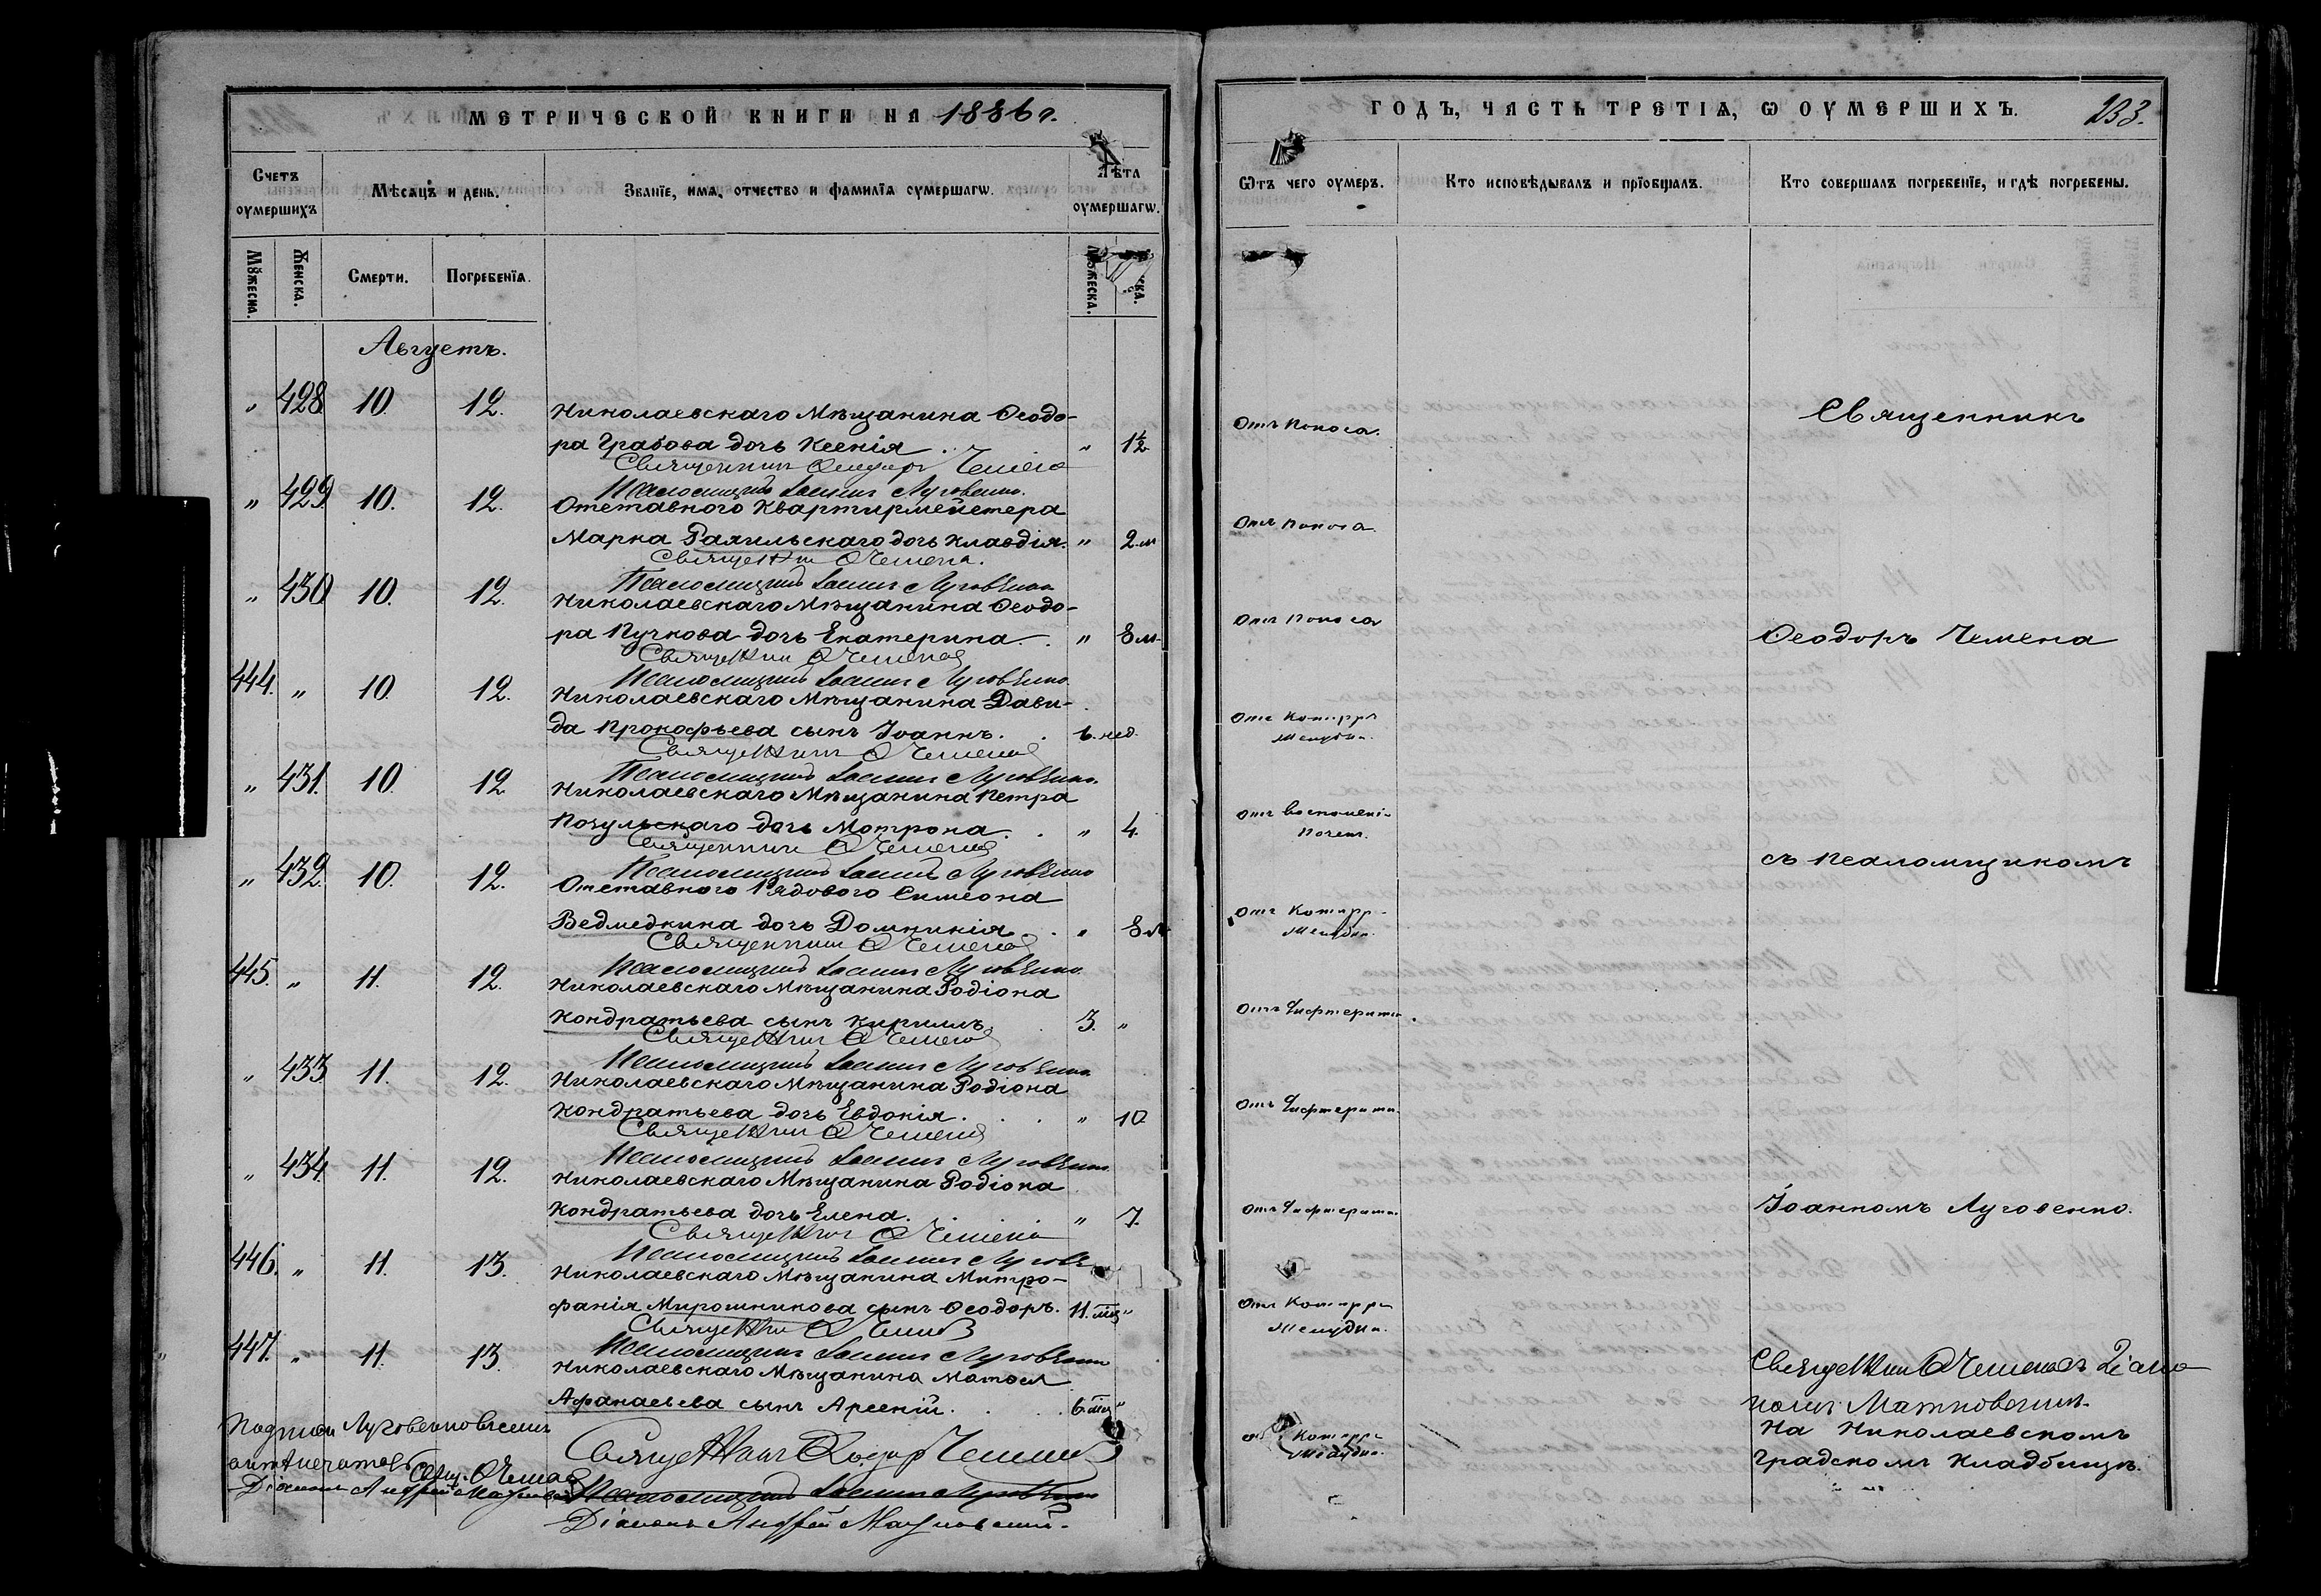 МЕТРИЧЕСКОЙ КНИГИ НА 1886 г.
Счетъ оумершихъ
Мѣсяцъ и день.
Званїе, имя, отчество и фамилїа оумершагѡ.
Лѣта оумершагѡ.
Мꙋжеска.
Женска.
Смерти.
Погребенїя.
Мꙋжеска.
ска.
Августъ.
„ 428 10. 12. Николаевскаго Мѣщанина Ѳеодо-
ра Грабова дочь Ксенія . „ 1½
Священникъ Ѳеодоръ Чемена
Псаломщикъ Іоаннъ Луговенко.
„ 429. 10. 12. Отставного Квартирмейстера
Марка Раяильскаго дочь Клавдія. „ 2. м
Священникъ Ѳ Чемена.
Псаломщикъ Іоаннъ Луговенко
„ 430 10. 12. Николаевскаго Мѣщанина Ѳеодо-
ра Пучкова дочь Екатерина . „ 8 м.
Священникъ Ѳ Чемена
Псаломщикъ Іоаннъ Луговенко.
444. „ 10. 12. Николаевскаго Мѣщанина Дави-
да Прокофьева сынъ Іоаннъ. . 6. нед.
Священникъ Ѳ Чемена
Псаломщикъ Іоаннъ Луговенко.
„ 431. 10. 12 Николаевскаго Мѣщанина Петра
Почульскаго дочь Мотрона . . „ 4.
Священникъ Ѳ Чемена
Псаломщикъ Іоаннъ Луговенко
„ 432. 10. 12. Отставного Рядового Симеона
Ведмедкина дочь Домникія . „ 8 м
Священникъ Ѳ Чемена
Псаломщикъ Іоаннъ Луговенко.
445. „ 11. 12. Николаевскаго Мѣщанина Родіона
Кондратьева сынъ Кириллъ . 3. „
Священникъ Ѳ Чемена
Псаломщикъ Іоаннъ Луговенко
„ 433 11. 12. Николаевскаго Мѣщанина Родіона
Кондратьева дочь Евдокія . . . „ 10
Священникъ Ѳ Чемена
Псаломщикъ Іоаннъ Луговенко.
„ 434. 11. 12. Николаевскаго Мѣщанина Родіона
Кондратьева дочь Елена. . . „ 7.
Священникъ Ѳ Чемена
Псаломщикъ Іоаннъ Лугове
446. „ 11. 13. Николаевскаго Мѣщанина Митро-
фанія Мирошникова сынъ Ѳеодоръ. 11. мц „
Священникъ Ѳ Чемена
Псаломщикъ Іоаннъ Луговенко
447. „ 11. 13. Николаевскаго Мѣщанина Матѳея
Афанасьева сынъ Арсеній . . . 6 мц „
Священникъ Ѳеодоръ Чемена
Псаломщикъ Іоаннъ Луговенко
Діаконъ Андрей Матковскій.
Подписи Луговенко
Свящ. Ѳ Чемена
Діаконъ Андрей
ГОДЪ, ЧАСТЬ ТРЕТІѦ, Ѡ ОУМЕРШИХЪ. 233.
Ѿтъ чего оумеръ.
Кто исповѣдывалъ и прїобщалъ.
Кто совершалъ погребенїе, и гдѣ погребены.
Отъ Поноса.
Священникъ
Отъ Поноса
Отъ Поноса
Ѳеодоръ Чемена
Отъ Катарра
Желудка.
Отъ Воспаленія
Почекъ.
съ Псаломщикомъ
Отъ Катарра
Желудка.
Отъ Дифтерита.
Отъ Дифтерита.
Отъ Дифтерита.
Іоанномъ Луговенко.
Отъ Катарра
Желудка.
Священникъ Ѳ Чемена съ Діако
номъ Матковскимъ.
На Николаевскомъ
Градскомъ Кладбищѣ.
Катарра
Желудка.